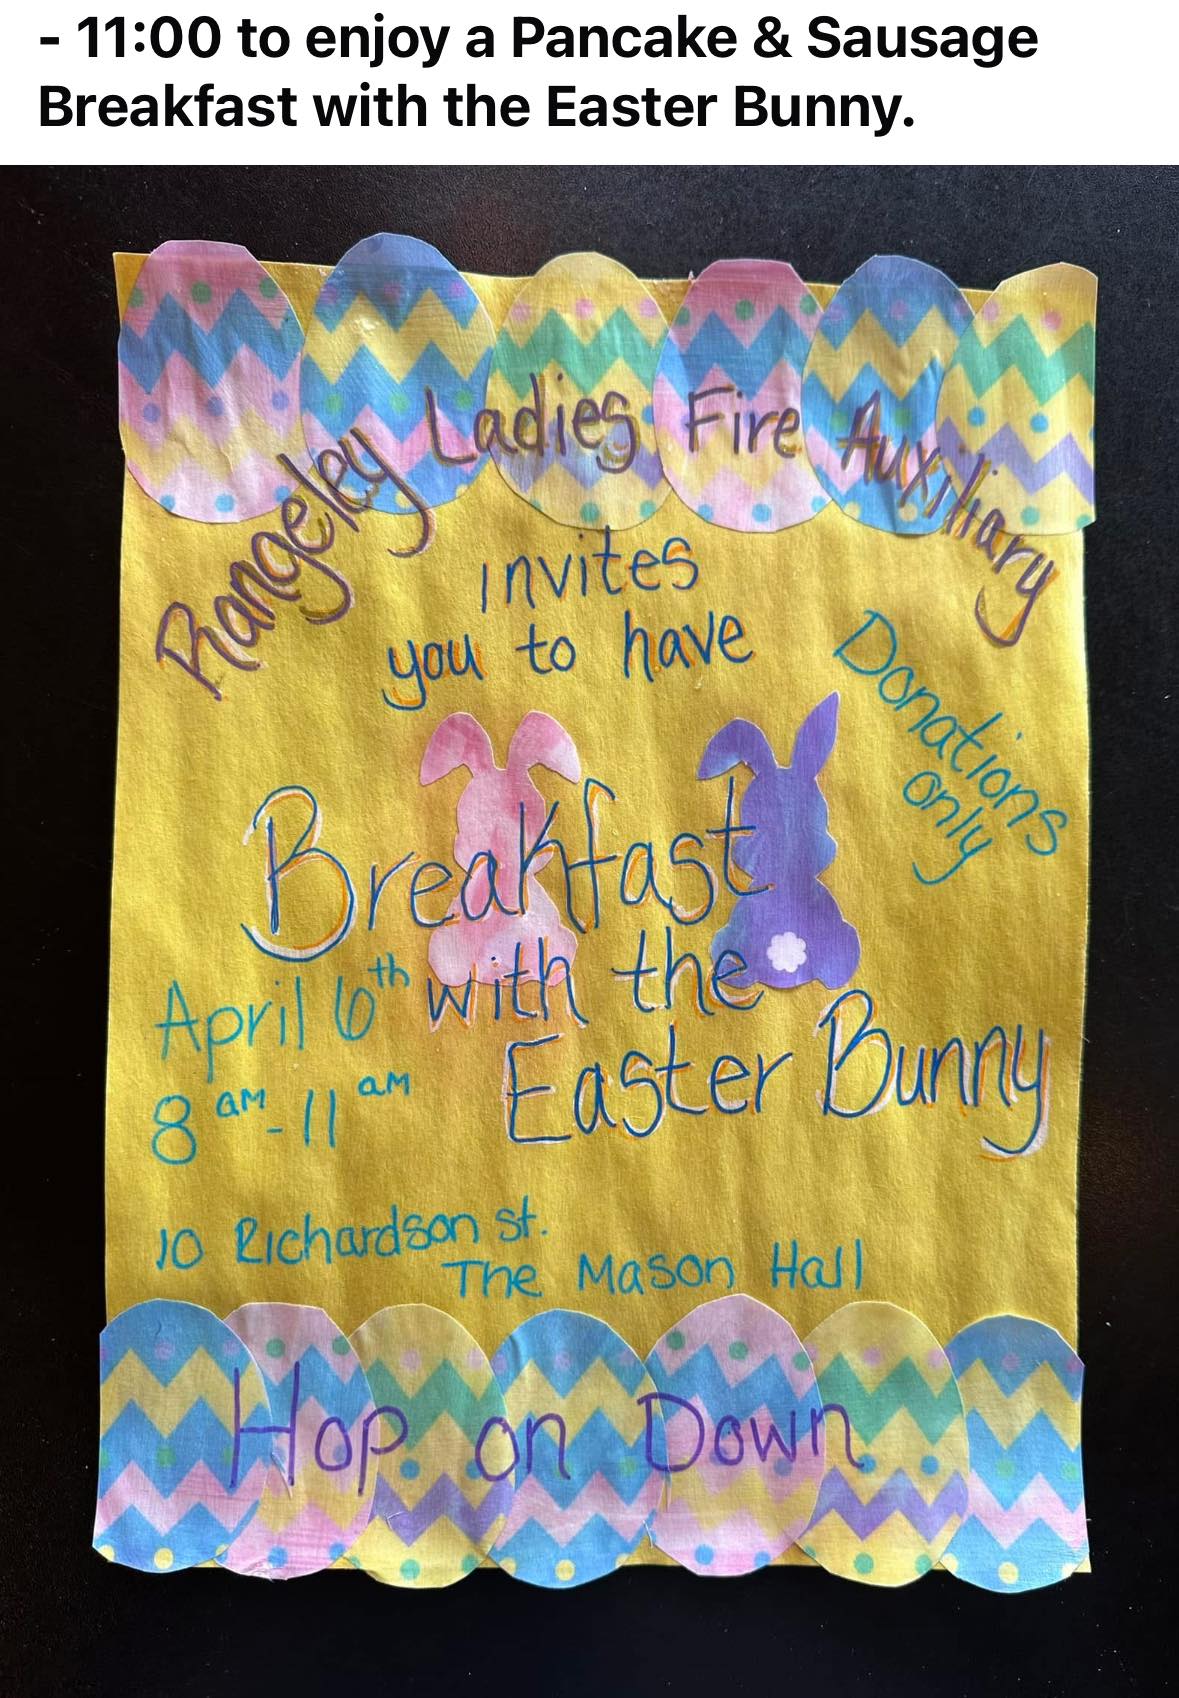 - 11:00 to enjoy a Pancake & Sausage
Breakfast with the Easter Bunny.
Rangeley Ladies Fire Auxiliary
invites
you to have
Donations
only
Breakfast
with the
Easter Bunny
April 6th
8 am - 11 am
10 Richardson St.
The Mason Hall
Hop on Down